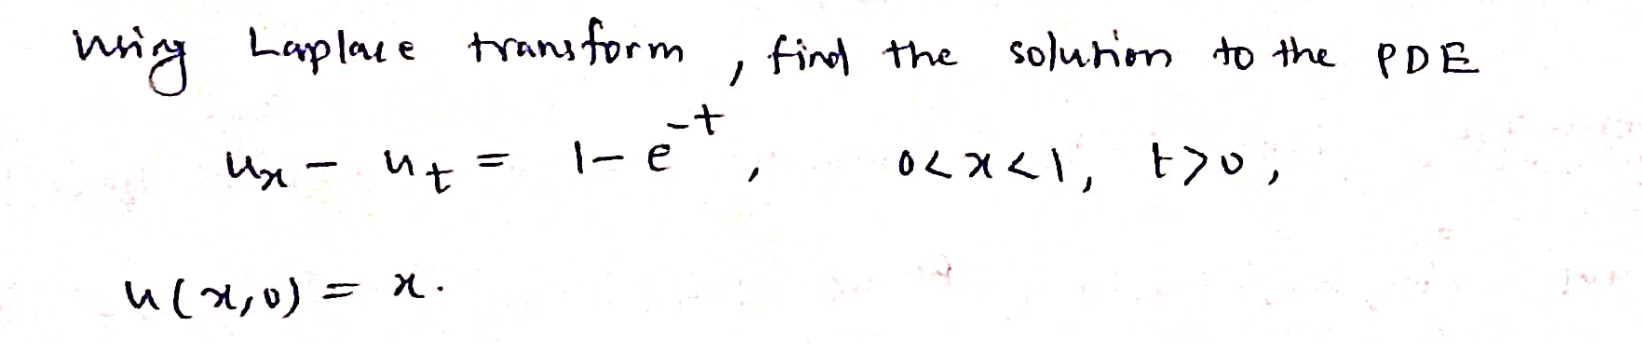 using Laplace transform, find the solution to the PDE
u_x - u_t = 1 - e^{-t}, 0<x<1, t>0,
u(x,0) = x.